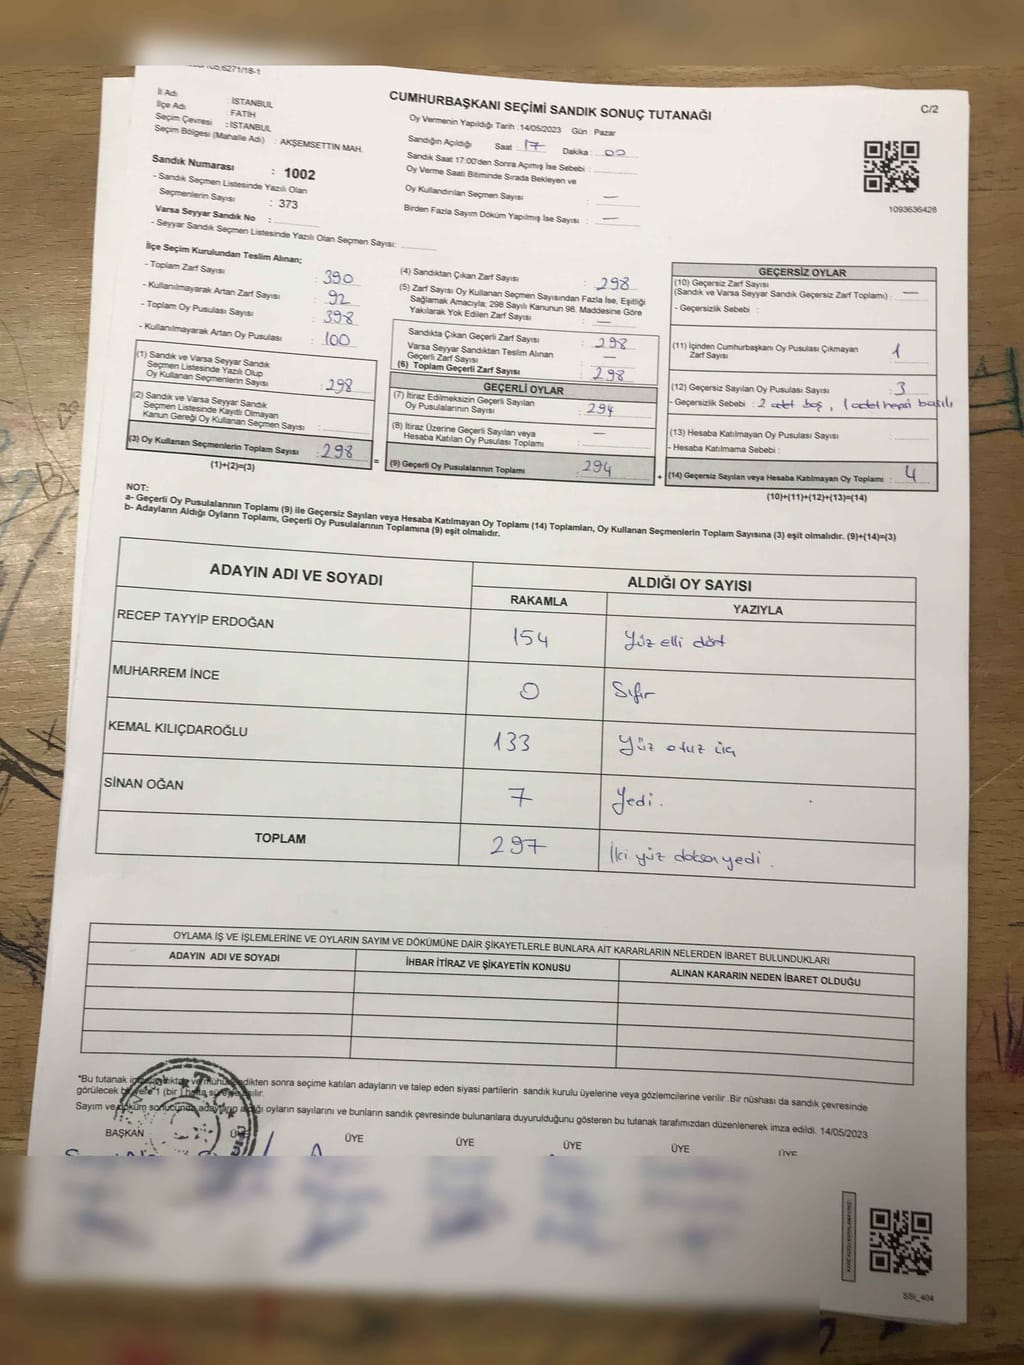 6271/18-1
C/2
CUMHURBAŞKANI SEÇİMİ SANDIK SONUÇ TUTANAĞI
İl Adı : İSTANBUL
İlçe Adı : FATİH
Seçim Çevresi : İSTANBUL
Seçim Bölgesi (Mahalle Adı) : AKŞEMSETTİN MAH.
Sandık Numarası : 1002
- Sandık Seçmen Listesinde Yazılı Olan
Seçmenlerin Sayısı : 373
Varsa Seyyar Sandık No :
- Seyyar Sandık Seçmen Listesinde Yazılı Olan Seçmen Sayısı:
Oy Vermenin Yapıldığı Tarih : 14/05/2023 Gün : Pazar
Sandığın Açıldığı Saat : 17 Dakika : 00
Sandık Saat 17:00'den Sonra Açımış İse Sebebi :
Oy Verme Saati Bitiminde Sırada Bekleyen ve
Oy Kullandırılan Seçmen Sayısı : —
Birden Fazla Sayım Döküm Yapılmış İse Sayısı : —
1093636428
İlçe Seçim Kurulundan Teslim Alınan;
- Toplam Zarf Sayısı : 390
- Kullanılmayarak Artan Zarf Sayısı : 92
- Toplam Oy Pusulası Sayısı : 398
- Kullanılmayarak Artan Oy Pusulası : 100
(1) Sandık ve Varsa Seyyar Sandık
Seçmen Listesinde Yazılı Olup
Oy Kullanan Seçmenlerin Sayısı : 298
(2) Sandık ve Varsa Seyyar Sandık
Seçmen Listesinde Kayıtlı Olmayan
Kanun Gereği Oy Kullanan Seçmen Sayısı :
(3) Oy Kullanan Seçmenlerin Toplam Sayısı : 298
(1)+(2)=(3)
(4) Sandıktan Çıkan Zarf Sayısı : 298
(5) Zarf Sayısı Oy Kullanan Seçmen Sayısından Fazla İse, Eşitliği
Sağlamak Amacıyla; 298 Sayılı Kanunun 98. Maddesine Göre
Yakılarak Yok Edilen Zarf Sayısı : —
Sandıkta Çıkan Geçerli Zarf Sayısı : 298
Varsa Seyyar Sandıktan Teslim Alınan
Geçerli Zarf Sayısı : —
(6) Toplam Geçerli Zarf Sayısı : 298
GEÇERLİ OYLAR
(7) İtiraz Edilmeksizin Geçerli Sayılan
Oy Pusulalarının Sayısı : 294
(8) İtiraz Üzerine Geçerli Sayılan veya
Hesaba Katılan Oy Pusulası Toplamı : —
= (9) Geçerli Oy Pusulalarının Toplamı : 294
GEÇERSİZ OYLAR
(10) Geçersiz Zarf Sayısı
(Sandık ve Varsa Seyyar Sandık Geçersiz Zarf Toplamı) : —
- Geçersizlik Sebebi :
(11) İçinden Cumhurbaşkanı Oy Pusulası Çıkmayan
Zarf Sayısı : 1
(12) Geçersiz Sayılan Oy Pusulası Sayısı : 3
- Geçersizlik Sebebi : 2 adet boş, 1 adet hepsi basılı
(13) Hesaba Katılmayan Oy Pusulası Sayısı :
- Hesaba Katılmama Sebebi :
+ (14) Geçersiz Sayılan veya Hesaba Katılmayan Oy Toplamı : 4
(10)+(11)+(12)+(13)=(14)
NOT:
a- Geçerli Oy Pusulalarının Toplamı (9) ile Geçersiz Sayılan veya Hesaba Katılmayan Oy Toplamı (14) Toplamları, Oy Kullanan Seçmenlerin Toplam Sayısına (3) eşit olmalıdır. (9)+(14)=(3)
b- Adayların Aldığı Oyların Toplamı, Geçerli Oy Pusulalarının Toplamına (9) eşit olmalıdır.
ADAYIN ADI VE SOYADI ALDIĞI OY SAYISI
RAKAMLA YAZIYLA
RECEP TAYYİP ERDOĞAN 154 Yüz elli dört
MUHARREM İNCE 0 Sıfır
KEMAL KILIÇDAROĞLU 133 Yüz otuz üç
SİNAN OĞAN 7 Yedi.
TOPLAM 297 İki yüz doksan yedi.
OYLAMA İŞ VE İŞLEMLERİNE VE OYLARIN SAYIM VE DÖKÜMÜNE DAİR ŞİKAYETLERLE BUNLARA AİT KARARLARIN NELERDEN İBARET BULUNDUKLARI
ADAYIN ADI VE SOYADI İHBAR İTİRAZ VE ŞİKAYETİN KONUSU ALINAN KARARIN NEDEN İBARET OLDUĞU
*Bu tutanak ve sonra seçime katılan adayların ve talep eden siyasi partilerin sandık kurulu üyelerine veya gözlemcilerine verilir .Bir nüshası da sandık çevresinde
görülecek bir yere 1 (bir) hafta asılır.
Sayım ve döküm sonucunda adayların aldığı oyların sayılarını ve bunların sandık çevresinde bulunanlara duyurulduğunu gösteren bu tutanak tarafımızdan düzenlenerek imza edildi. 14/05/2023
BAŞKAN ÜYE ÜYE ÜYE ÜYE ÜYE ÜYE
SSİ_404